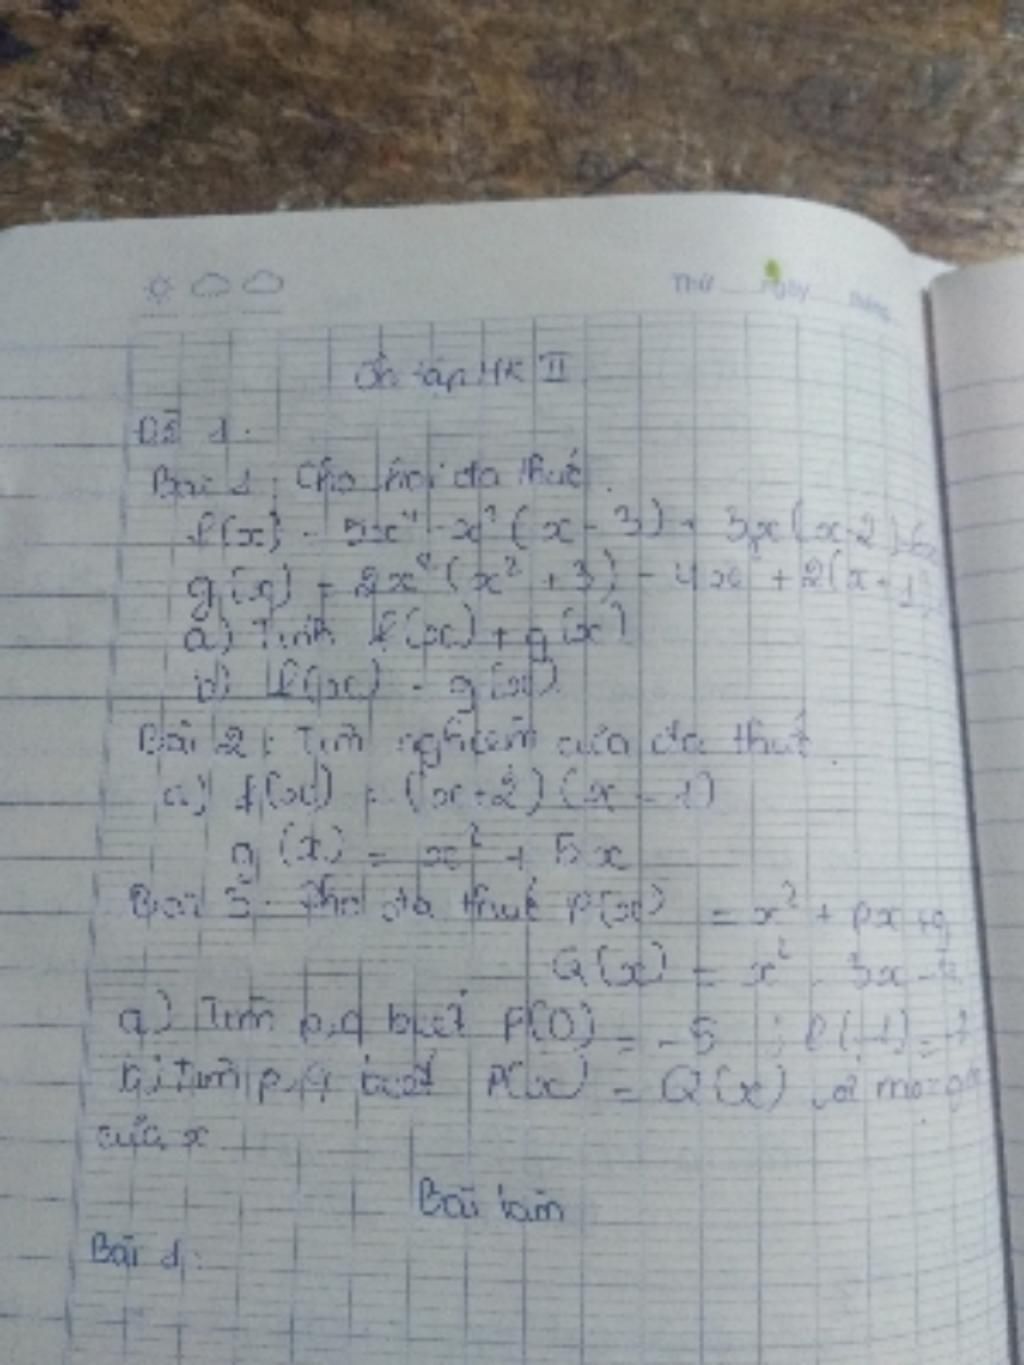 Thứ ngày tháng
Ôn tập HK II
Đề 1.
Bài 1: Cho hai đa thức.
f(x) = 5x⁴ - x² (x - 3) + 3x(x-2)
g(x) = 2x⁴ (x² + 3) - 4x + 2(x - 1)
a) Tính f(x) + g(x)
b) f(x) - g(x).
Bài 2: Tìm nghiệm của đa thức.
a) f(x) = (x+2) (x - 1)
g(x) = x² + 5x
Bài 3: Cho đa thức P(x) = x² + px + q
Q(x) = x² - 3x -
a) Tìm p,q biết P(0) = -5 ; P(-1) =
b) Tìm p,q biết P(x) = Q(x) với mọi
của x
Bài làm
Bài 1: